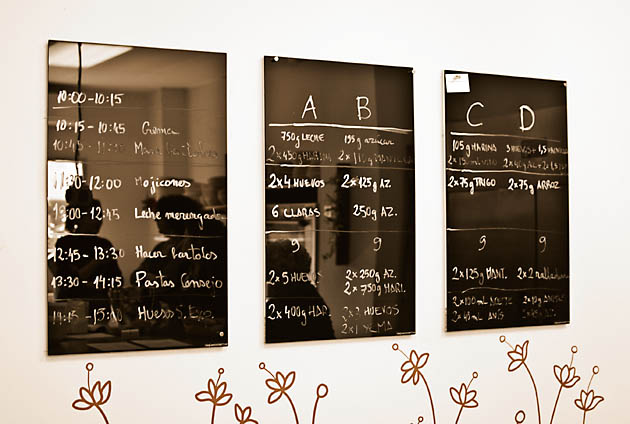 10:00-10:15
10:15-10:45 Crema
10:45-11:15
11:30-12:00 Mojicones
12:00-12:45 Leche merengada
12:45-13:30 Hacer bartolos
13:30-14:15 Pastas Consejo
14:15-15:00 Huesos S.
A B
750g LECHE 195g azúcar
2x450g
2x4 HUEVOS 2x125g AZ.
6 CLARAS 250g AZ.
9 9
2x5 HUEVOS 2x250g AZ.
2x750g HARI.
2x400g HAR. 2x2 HUEVOS
2x1 YEMA
C D
105g HARINA 3 HUEVOS
2x75g TRIGO 2x75g ARROZ
9 9
2x125g MANT. 2x2 ralladuras
2x100mL ACEITE
2x40mL ANÍS